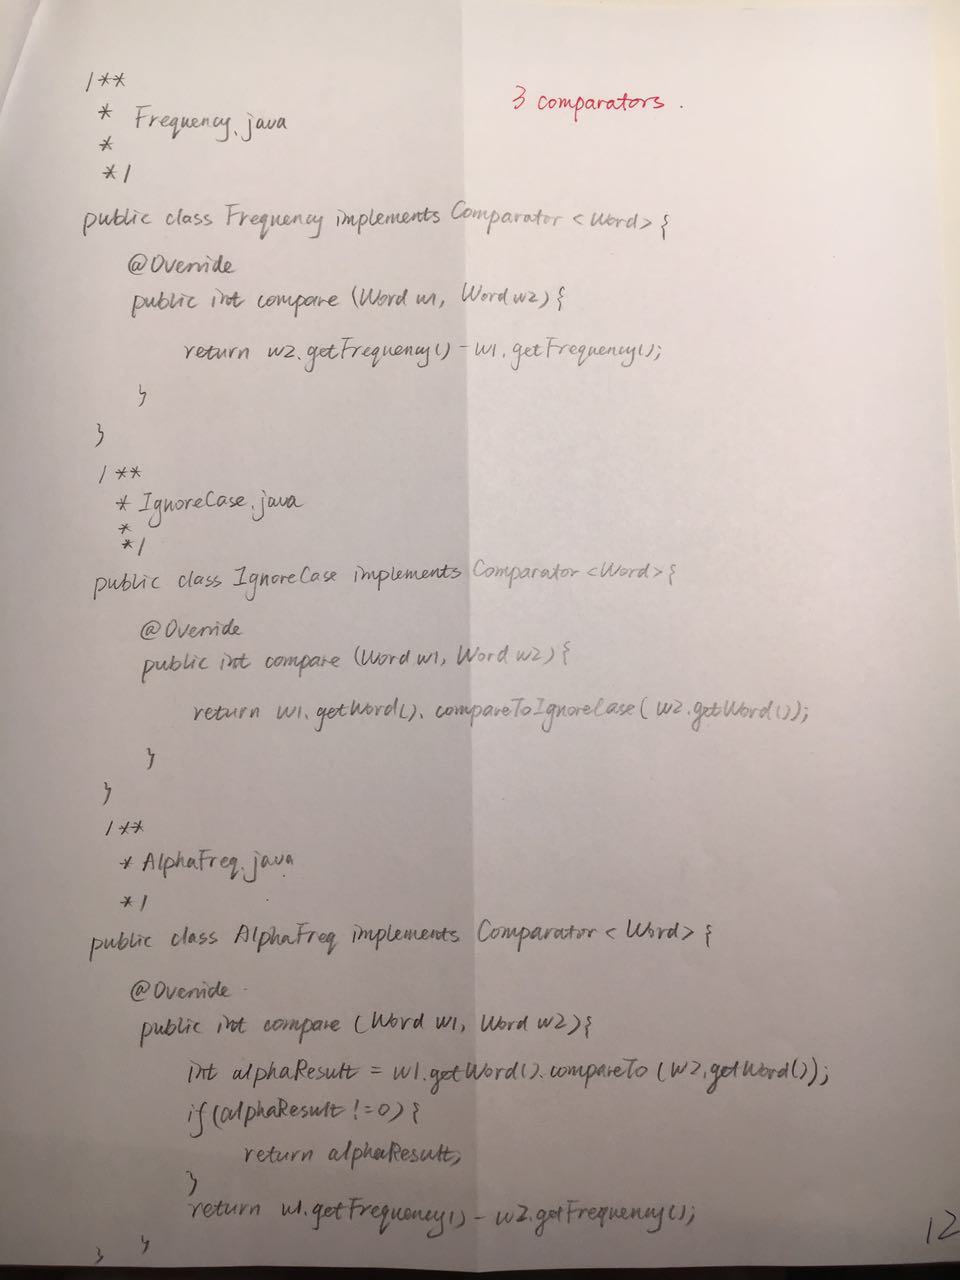 3 comparators.
/**
* Frequency.java
*
*/
public class Frequency implements Comparator <Word> {
@Override
public int compare (Word w1, Word w2) {
return w2.getFrequency() - w1.getFrequency();
}
}
/**
* IgnoreCase.java
*
*/
public class IgnoreCase implements Comparator <Word> {
@Override
public int compare (Word w1, Word w2) {
return w1.getWord().compareToIgnoreCase( w2.getWord());
}
}
/**
* AlphaFreq.java
*/
public class AlphaFreq implements Comparator < Word> {
@Override
public int compare (Word w1, Word w2) {
int alphaResult = w1.getWord().compareTo (w2.getWord());
if (alphaResult != 0) {
return alphaResult;
}
return w1.getFrequency() - w2.getFrequency();
} }
12